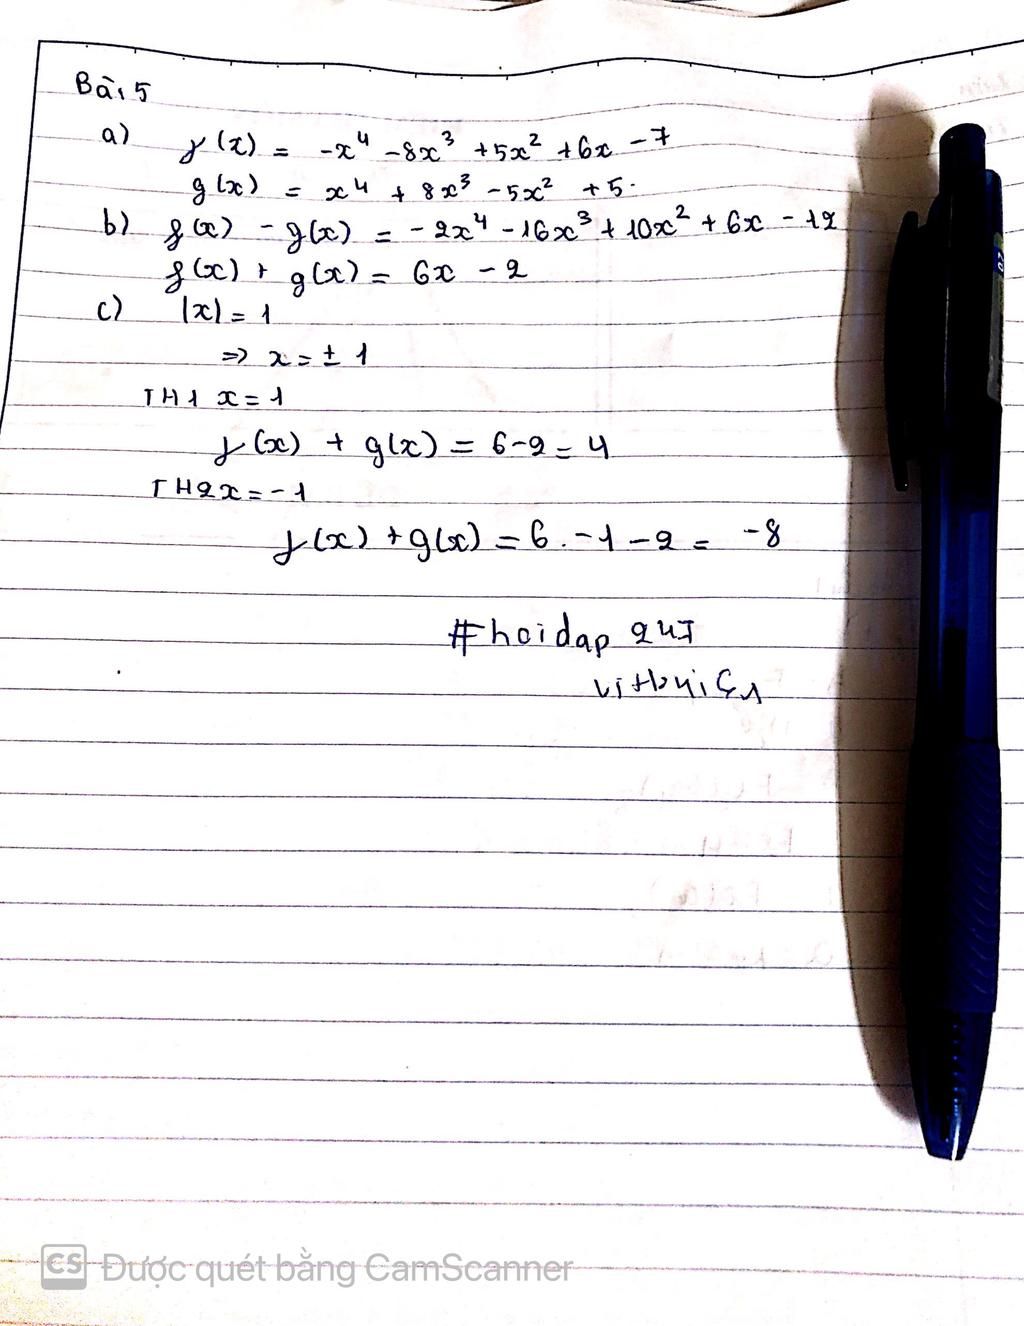 Bài 5
a) f(x) = -x⁴ -8x³ +5x² +6x -7
g(x) = x⁴ + 8x³ -5x² +5.
b) f(x) - g(x) = -2x⁴ -16x³ + 10x² + 6x - 12
f(x) + g(x) = 6x - 2
c) |x| = 1
=> x = ± 1
TH1 x = 1
f(x) + g(x) = 6-2 = 4
TH2 x = -1
f(x) + g(x) = 6 . -1 -2 = -8
#hoidap 247
CS Được quét bằng CamScanner